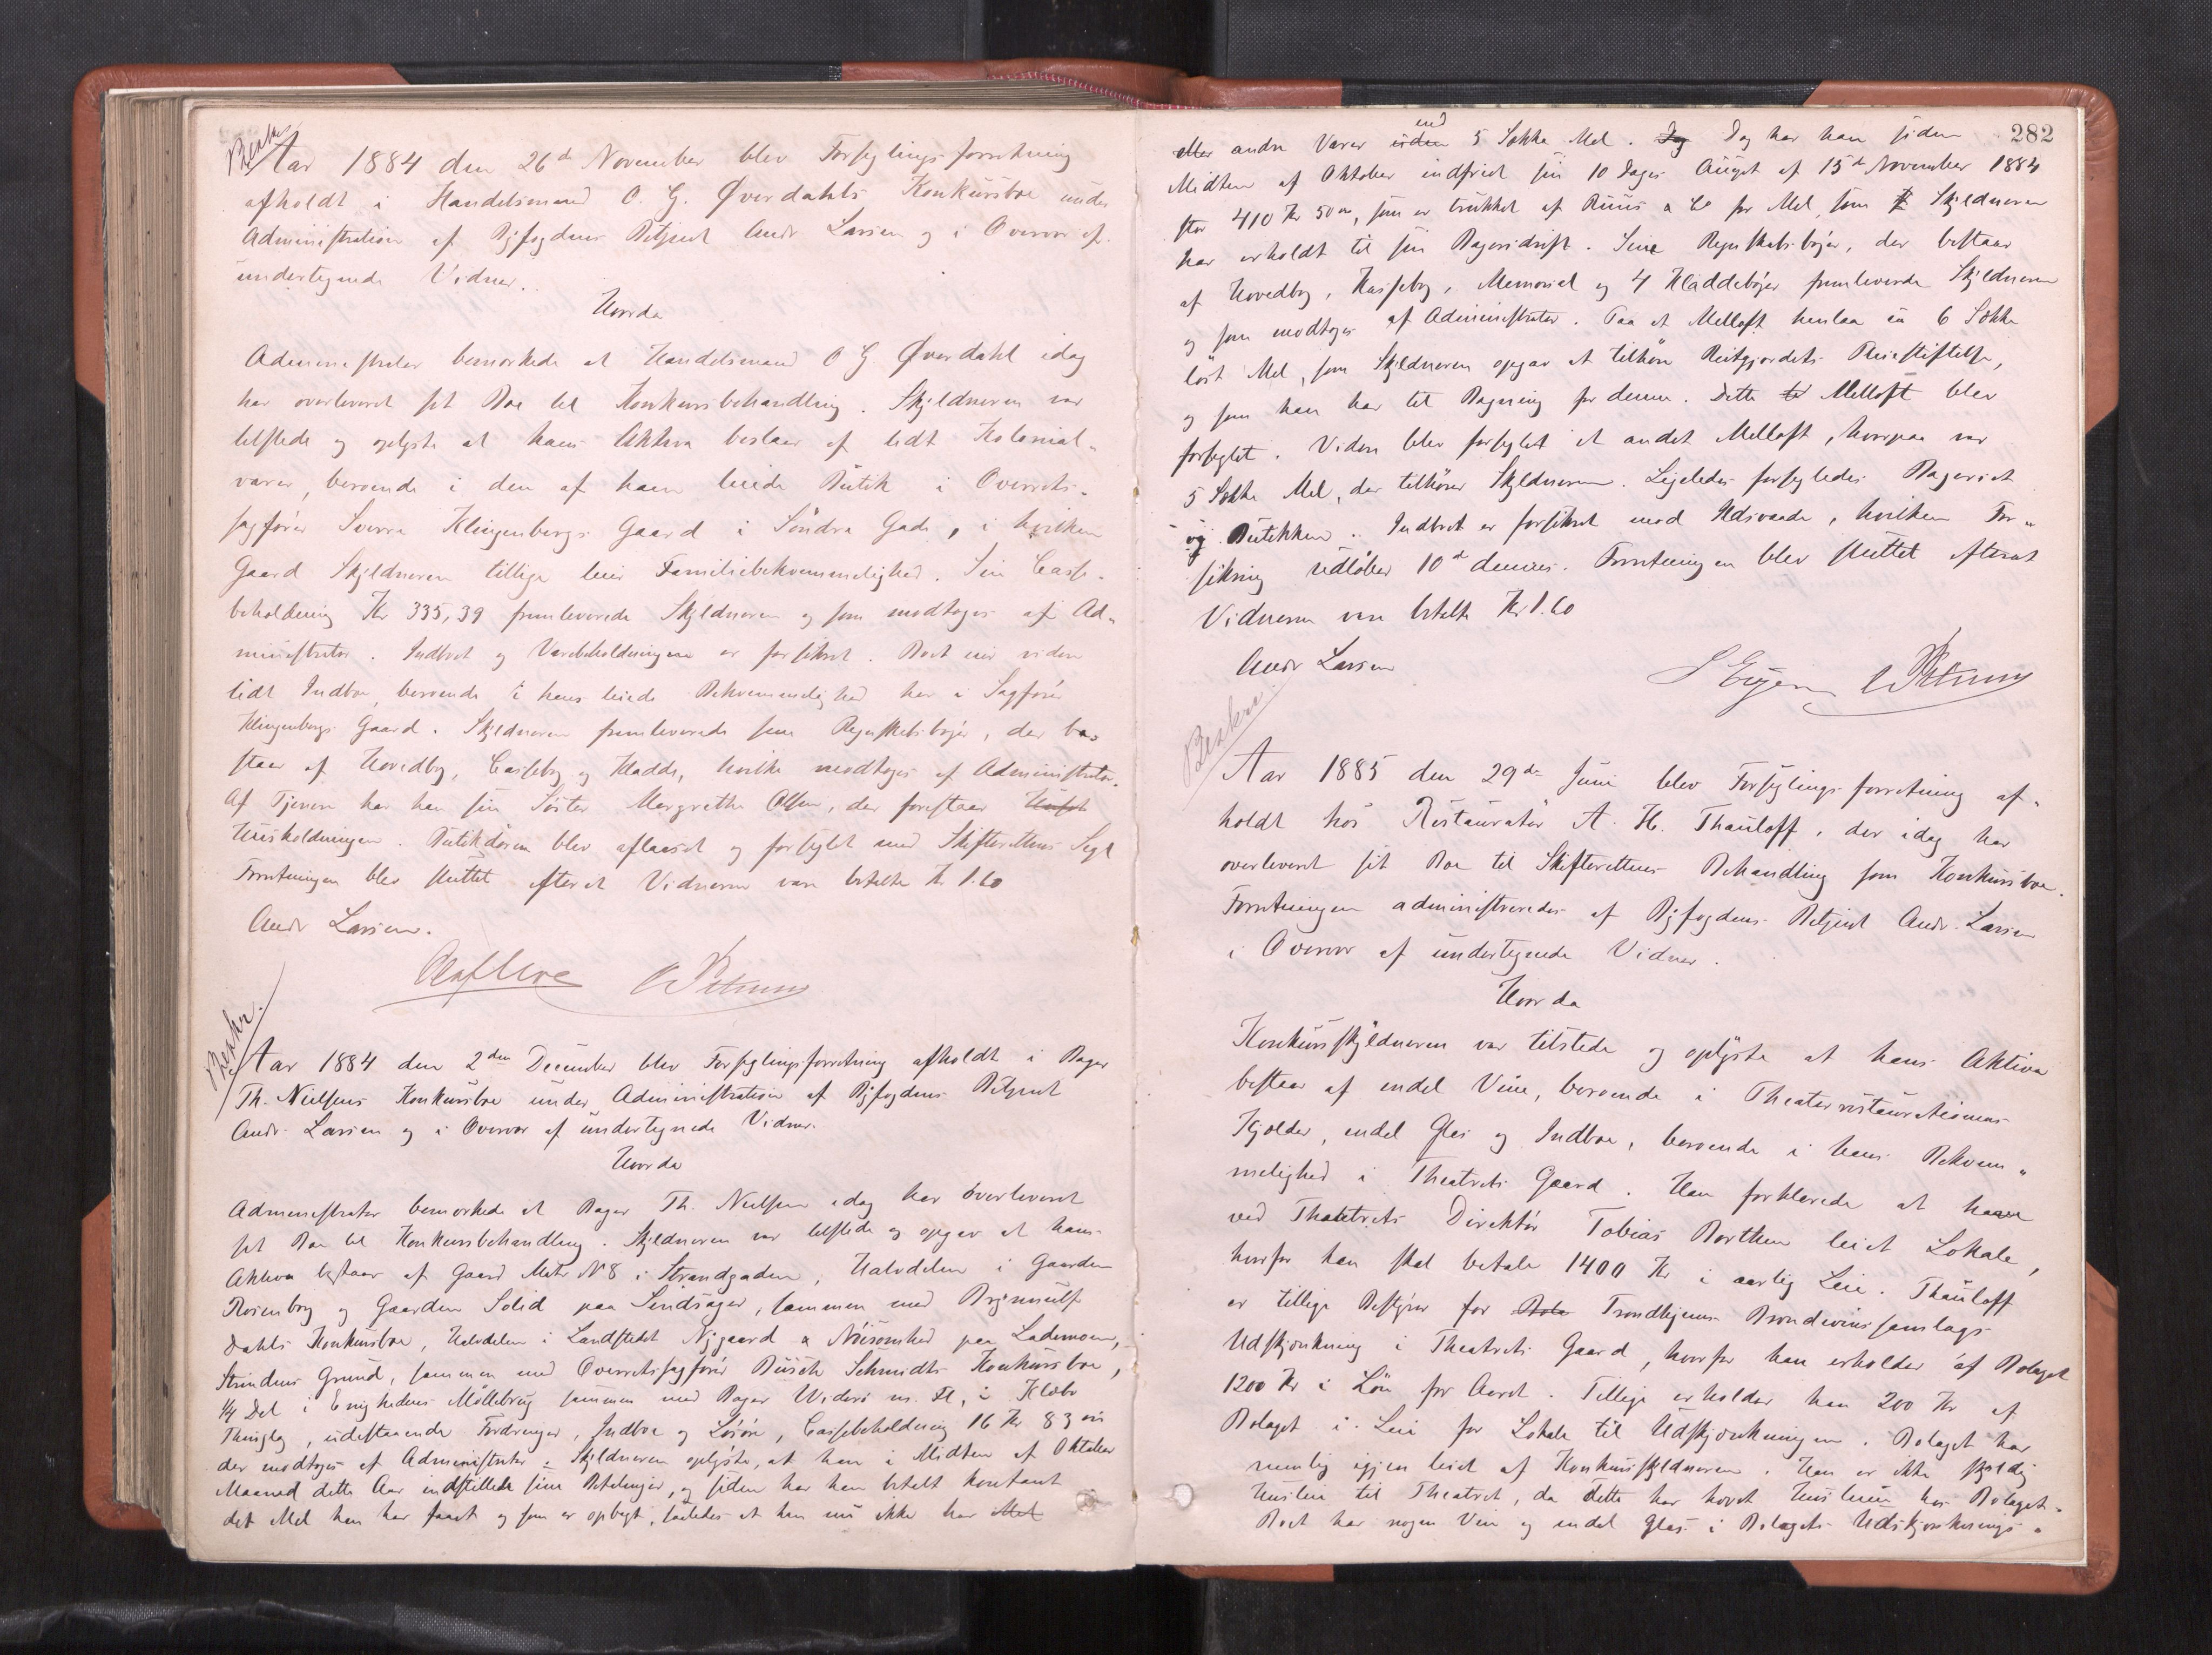 Beskr.
Aar 1884 den 26de November blev Forseglingsforretning
afholdt i Handelsmand O. G. Øverdahls Konkursboe under
Administration af Byfogdens Betjent Andr Larsen og i Overvær af
undertegnede Vidner.
Hvorda
Administrator bemærkede at Handelsmand O G. Øverdahl idag
har overleveret sit Boe til Konkursbehandling. Skyldneren var
tilstede og oplyste at hans Aktiva bestaar af lidt Kolonial-
varer, beroende i den af ham leiede Butik i Overrets-
sagfører Sverre Klingenbergs Gaard i Søndre Gade, i hvilken
Gaard Skyldneren tillige leier Familiebekvemmelighed. Sin Casse-
beholdning Kr 335,39 fremleverede Skyldneren og som modtoges af Ad-
ministrator. Indboet og Varebeholdningen er forsikret. Boet eier videre
lidt Indboe, beroende i hans leiede Bekvemmelighed her i Sagfører
Klingenbergs Gaard. Skyldneren fremleverede sine Regnskabsbøger, der be-
staar af Hovedbog, Cassebog og Kladde, hvilke modtoges af Administrator.
Af Tjenere har han sin Søster Margrethe Olsen, der forestaar Hush
Husholdningen. Butikdøren blev aflaaset og forseglet med Skifterettens Segl
Forretningen blev sluttet efterat Vidnerne vare betalte Kr 1.60
Andr Larsen.
O Petersen
Beskr.
Aar 1884 den 2den December blev Forseglingsforretning afholdt i Bager
Th. Nielsens Konkursboe under Administration af Byfogdens Betjent
Andr. Larsen og i Overvær af undertegnede Vidner.
Hvorda
Administrator bemærkede at Bager Th. Nielsen idag har overleveret
sit Boe til Konkursbehandling. Skyldneren var tilstede og opgav at hans
Aktiva bestaar af Gaard Matr N 8 i Strandgaden, Halvdelen i Gaarden
Rosenborg og Gaarden Solid paa Sindsager, sammen med Brynulf
Dahls Konkursboe, Halvdelen i Landstedet Nygaard & Nøisomhed paa Lademoen,
Strindens Grund, sammen med Overretssagfører Busch Schmidts Konkursboe,
1/4 Del i Enighedens Møllebrug sammen med Bager Widerø m. Fl, i Klæbo
Thinglag, udestaaende Fordringer, Indboe og Løsøre, Cassebeholdning 16 Kr 83 øre
der modtoges af Administrator. Skyldneren oplyste, at han i Midten af Oktober
Maaned dette Aar indstillede sine Betalinger, og siden har han betalt kontant
det Mel han har faaet og som er opbrugt, saaledes at han nu ikke har Mel
282
eller andre Varer uden end 5 Sække Mel. Jeg Dog har han siden
Midten af Oktober indfriet sin 10 Dages Accept af 15de November 1884
stor 410 Kr 50 øre, som er trukket af Huus & Co for Mel, som Skyldneren
har erholdt til sin Bageridrift. Sine Regnskabsbøger, der bestaar
af Hovedbog, Kassebog, Memorial og 4 Kladdebøger fremleverede Skyldneren
og som modtoges af Administrator. Paa et Melloft henlaa ca 6 Sække
løst Mel, som Skyldneren opgav at tilhøre Reitgjerdets Pleiestiftelse,
og som han har til Bagning for denne. Dette Melloft blev
forseglet. Videre blev forseglet et andet Melloft, hvorpaa var
5 Sække Mel, der tilhører Skyldneren. Ligeledes forsegledes Bageriet
og Butikken. Indboet er forsikret mod Ildsvaade, hvilken For-
sikring udløber 10de dennes. Forretningen blev sluttet efterat
Vidnerne vare betalte Kr 1.60
Andr Larsen
O Petersen
Beskr.
Aar 1885 den 29de Juni blev Forseglingsforretning af-
holdt hos Restauratør A. H. Thauloff, der idag har
overleveret sit Boe til Skifterettens Behandling som Konkursboe.
Forretningen administreredes af Byfogdens Betjent Andr. Larsen
i Overvær af undertegnede Vidner.
Hvorda
Konkursskyldneren var tilstede og oplyste at hans Aktiva
bestaar af endel Vine, beroende i Theaterrestaurationens
Kjælder, endel Glas og Indboe, beroende i hans Bekvem-
melighed i Theatrets Gaard. Han forklarede at have
ved Theatrets Direktør Tobias Borthen leiet Lokale,
hvorfor han skal betale 1400 Kr i aarlig Leie. Thauloff
er tillige Bestyrer for Bola Trondhjems Brændevinssamlags
Udskjænkning i Theatrets Gaard, hvorfor han erholder af Bolaget
1200 Kr i Løn for Aaret. Tillige erholder han 200 Kr af
Bolaget i Leie for Lokale til Udskjænkningen. Bolaget har
nemlig igjen leiet af Konkursskyldneren. Han er ikke skyldig
Husleie til Theatret, da dette har hævet Husleien hos Bolaget.
Boet har nogen Vin og endel Glas i Bolagets Udskjænknings-